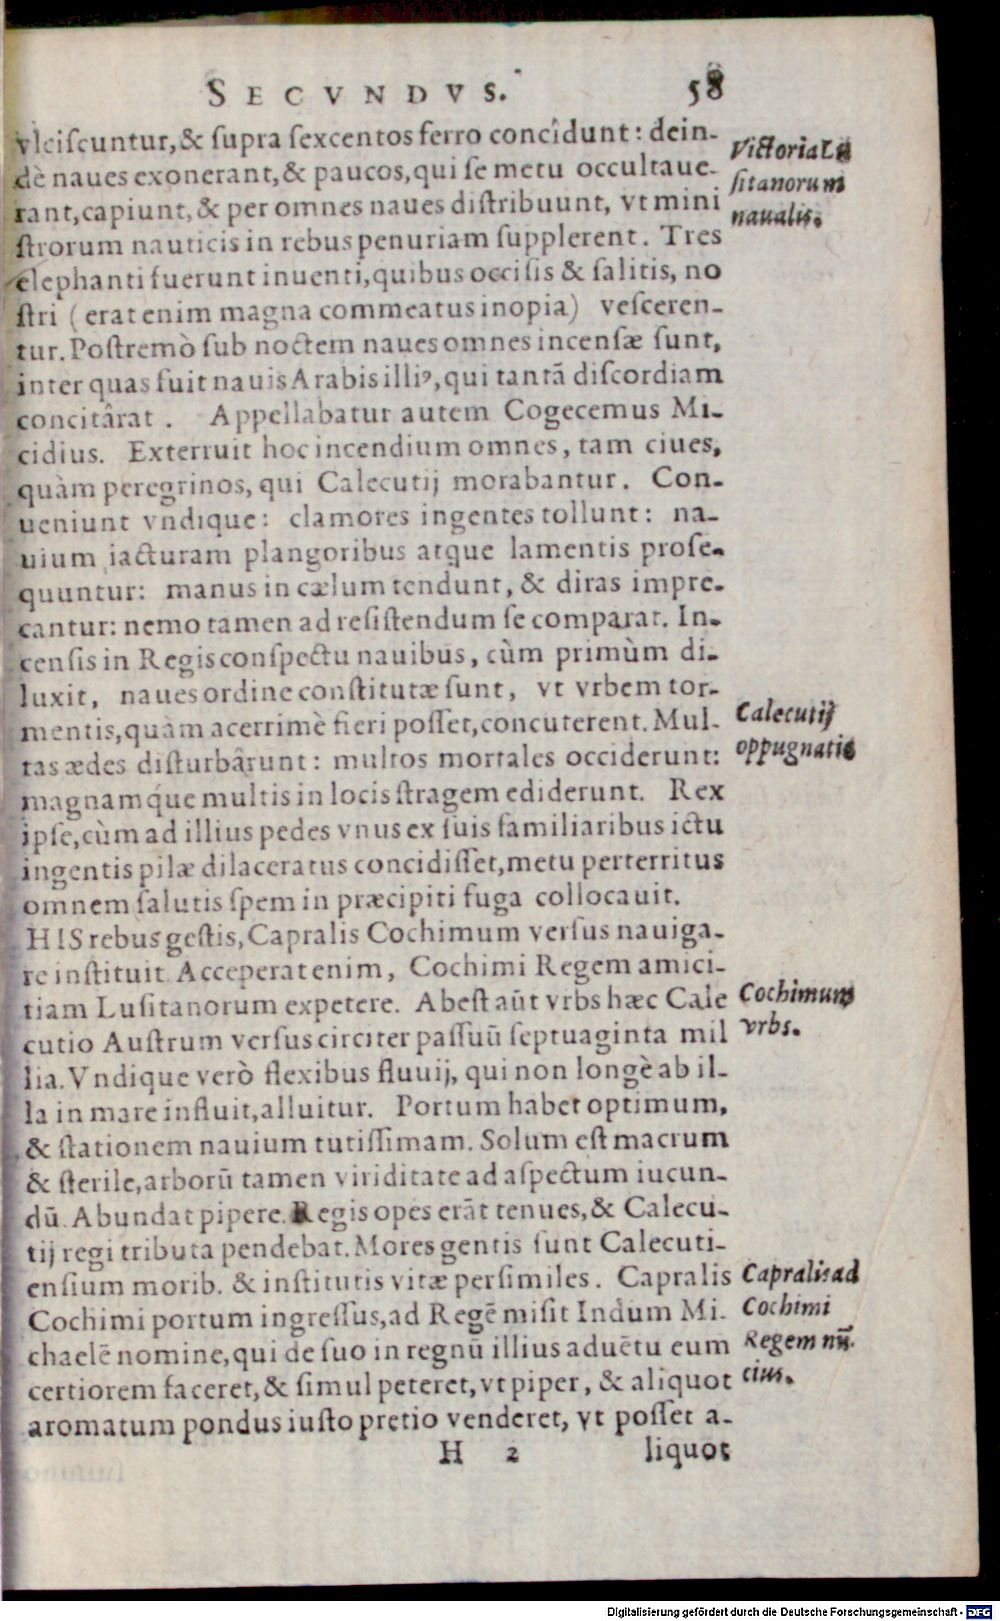 SECVNDVS. 58
vlciſcuntur, & ſupra ſexcentos ferro concîdunt: dein-
dè naues exonerant, & paucos, qui ſe metu occultaue-
rant, capiunt, & per omnes naues diſtribuunt, vt mini
ſtrorum nauticis in rebus penuriam ſupplerent. Tres
elephanti fuerunt inuenti, quibus occiſis & ſalitis, no
ſtri (erat enim magna commeatus inopia) veſceren-
tur. Poſtremò ſub noctem naues omnes incenſæ ſunt,
inter quas fuit nauis Arabis illiꝰ, qui tantã diſcordiam
concitârat. Appellabatur autem Cogecemus Mi-
cidius. Exterruit hoc incendium omnes, tam ciues,
quàm peregrinos, qui Calecutij morabantur. Con-
ueniunt vndique: clamores ingentes tollunt: na-
uium iacturam plangoribus atque lamentis proſe-
quuntur: manus in cælum tendunt, & diras impre-
cantur: nemo tamen ad reſiſtendum ſe comparat. In-
cenſis in Regis conſpectu nauibus, cùm primùm di-
luxit, naues ordine conſtitutæ ſunt, vt vrbem tor-
mentis, quàm acerrimè fieri poſſet, concuterent. Mul-
tas ædes diſturbârunt: multos mortales occiderunt:
magnamq́ue multis in locis ſtragem ediderunt. Rex
ipſe, cùm ad illius pedes vnus ex ſuis familiaribus ictu
ingentis pilæ dilaceratus concidiſſet, metu perterritus
omnem ſalutis ſpem in præcipiti fuga collocauit.
HIS rebus geſtis, Capralis Cochimum verſus nauiga-
re inſtituit. Acceperat enim, Cochimi Regem amici-
tiam Luſitanorum expetere. Abeſt aũt vrbs hæc Cale
cutio Auſtrum verſus circiter paſſuũ ſeptuaginta mil
lia. Vndique verò flexibus fluuij, qui non longè ab il-
la in mare influit, alluitur. Portum habet optimum,
& ſtationem nauium tutiſſimam. Solum eſt macrum
& ſterile, arborũ tamen viriditate ad aſpectum iucun-
dũ. Abundat pipere. Regis opes erãt tenues, & Calecu-
tij regi tributa pendebat. Mores gentis ſunt Calecuti-
enſium morib. & inſtitutis vitæ perſimiles. Capralis
Cochimi portum ingreſſus, ad Regẽ miſit Indum Mi-
chaelẽ nomine, qui de ſuo in regnũ illius aduẽtu eum
certiorem faceret, & ſimul peteret, vt piper, & aliquot
aromatum pondus iuſto pretio venderet, vt poſſet a-
H 2 liquot
Victoria Lu
ſitanorum
naualis.
Calecutij
oppugnatio
Cochimum
vrbs.
Capralis ad
Cochimi
Regem nũ-
cius.
Digitalisierung gefördert durch die Deutsche Forschungsgemeinschaft - DFG